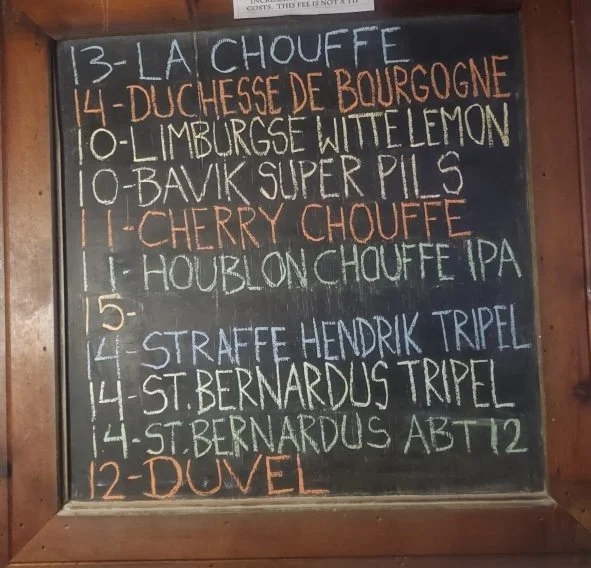 COSTS. THIS FEE IS NOT A TIP
13-LA CHOUFFE
14-DUCHESSE DE BOURGOGNE
10-LIMBURGSE WITTE LEMON
10-BAVIK SUPER PILS
11-CHERRY CHOUFFE
11-HOUBLON CHOUFFE IPA
15-
14-STRAFFE HENDRIK TRIPEL
14-ST.BERNARDUS TRIPEL
14-ST.BERNARDUS ABT 12
12-DUVEL